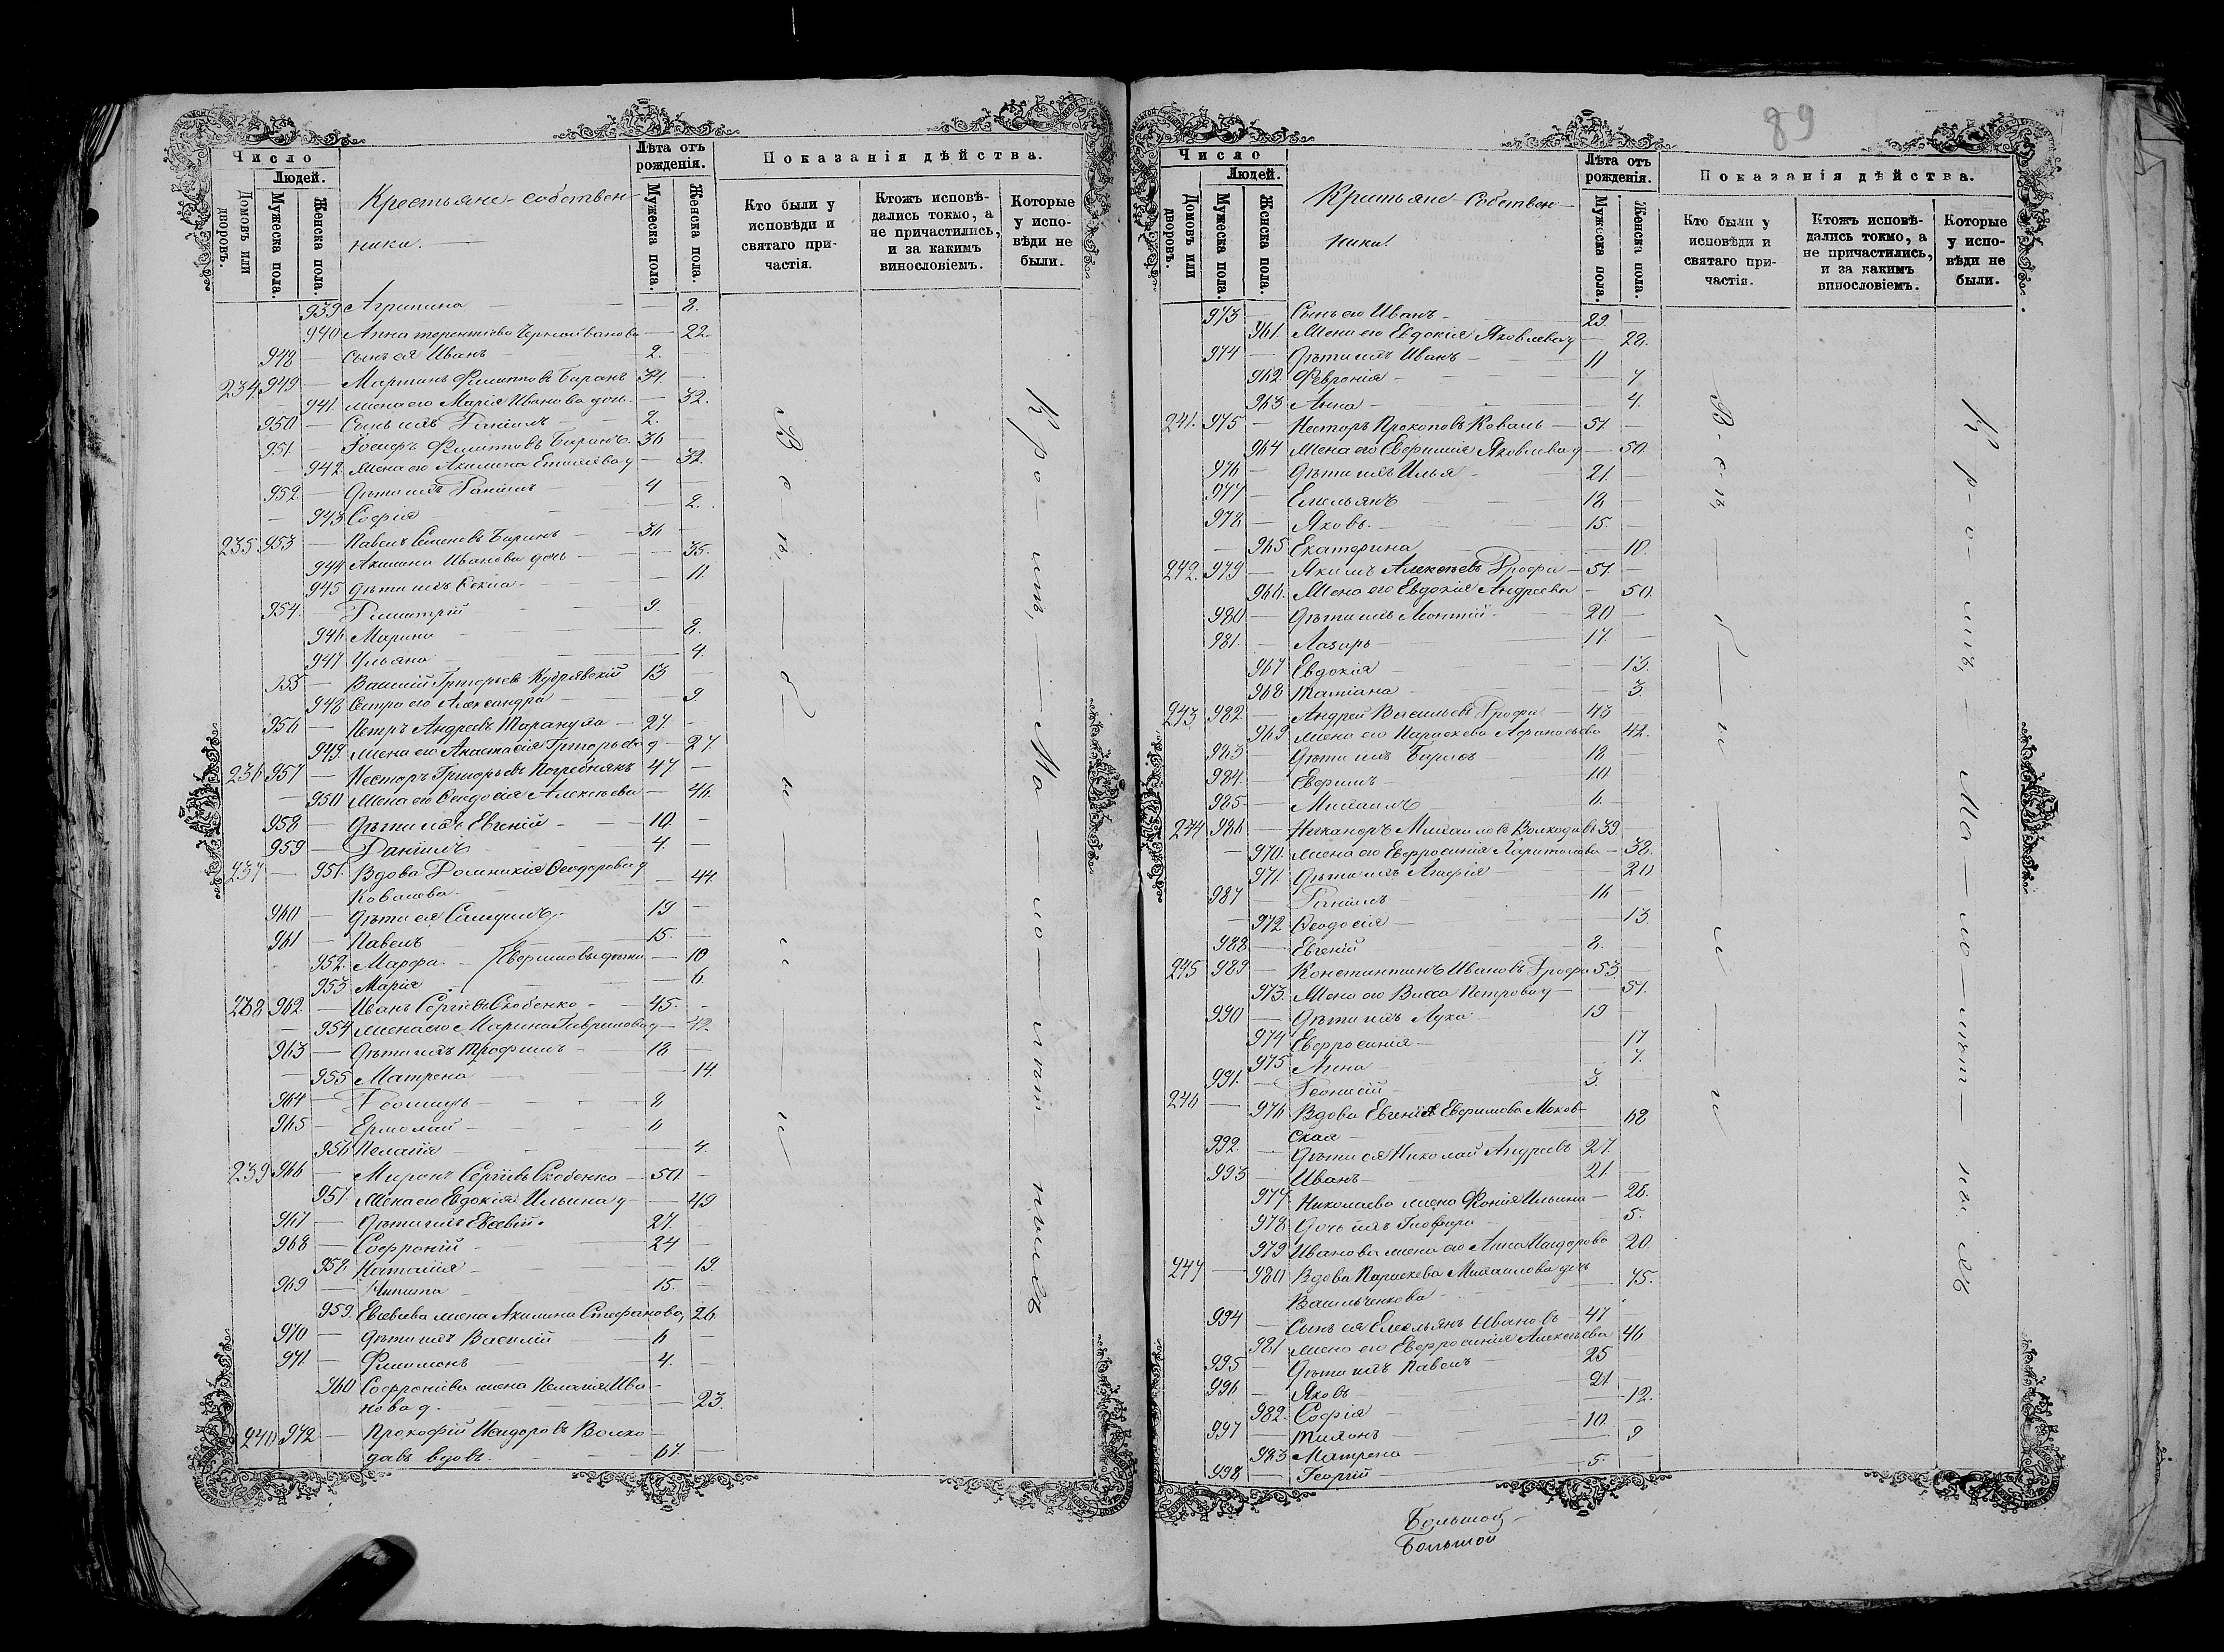 Число
Людей.
Домовъ или дворовъ.
Мужеска пола.
Женска пола.
Крестьяне-собствен-
ники.
Лѣта отъ рожденія.
Мужеска пола.
Женска пола.
Показанія дѣйства.
Кто были у исповѣди и святаго причастія.
Ктожъ исповѣдались токмо, а не причастились, и за какимъ винословіемъ.
Которые у исповѣди не были.
939 Агрипина 8.
940 Анна Терентіева 22.
948 Сынъ ея Иванъ 2.
234 949 Мартинъ Филиповъ Биранъ 34.
941. Жена его Марія Иванова дочь 32.
950 Сынъ ихъ Даніилъ 2.
951 Іосифъ Филиповъ 36
942. Жена его Акилина 32.
952. Дѣти ихъ Даніилъ 4
943 Софія 2.
235 953 Павелъ Семеновъ 36
944 Акилина Иванова дочь 35.
945 Дѣти ихъ Ѳекла 11.
954. Димитрій 9.
946 Марина 8.
947 Ульяна 4.
955 Василій Григорьевъ Кудрявскій 13
948 Сестра его Александра 9
956 Петръ Андреевъ Тарануха 27.
949. Жена его Анастасія Григорьева д 27.
236 957 Несторъ Григорьевъ Погребнякъ 47
950 Жена его Ѳеодосія Алексѣева 46.
958 Дѣти ихъ Евгеній 10.
959 Даніилъ 4.
237 951. Вдова Домникія Ѳеодорова д
Ковалева 44.
960 Дѣти ея Самуилъ 19
961 Павелъ 15.
952. Марфа Ефимовы дѣти 10
953 Марія 6.
238 962. Иванъ Сергіевъ Скобенко 45.
954 Жена его Марина Гаврилова д 42.
963 Дѣти ихъ Трофимъ 18
955 Матрена 14.
964 Леонидъ 8
965 Ермолай 6
956 Пелагія 4.
239 966 Миронъ Сергіевъ Скобенко 50.
957. Жена его Евдокія Ильина д 49
967 Дѣти ихъ Евсевій 27.
968 Софроній 24
958 Наталія 19
969 Никита 15.
959. Евсевіева жена Акилина Стефанова 26.
970 Дѣти ихъ Василій 6
971. Филимонъ 4.
960 Софроніева жена Пелагія Ива-
нова д. 23.
240 972 Прокофій Исидоровъ Волко-
давъ вдовъ. 67.
В с ѣ б ы л и
Кромѣ малолѣтныхъ
89
Число
Людей.
Домовъ или дворовъ.
Мужеска пола.
Женска пола.
Крестьяне-собствен-
ники.
Лѣта отъ рожденія.
Мужеска пола.
Женска пола.
Показанія дѣйства.
Кто были у исповѣди и святаго причастія.
Ктожъ исповѣдались токмо, а не причастились, и за какимъ винословіемъ.
Которые у исповѣди не были.
973 Сынъ его Иванъ 29.
961. Жена его Евдокія Яковлева д 28.
974 Дѣти ихъ Иванъ 11
962 Февронія 7
963 Анна 4.
241. 975 Несторъ Прокоповъ Коваль 51.
964 Жена его Евфимія Яковлева д 50
976 Дѣти ихъ Илья 21.
977 Емельянъ 18
978 Яковъ 15.
965 Екатерина 10.
242. 979 Якимъ Алексѣевъ Дрофа 51.
966. Жена его Евдокія Андреева 50.
980 Дѣти ихъ Леонтій 20
981. Лазарь 17.
967 Евдокія 13.
968 Татіана 3.
243 982. Андрей Васильевъ Дрофа 43
969 Жена его Параскева Афанасьева 42.
983 Дѣти ихъ Борисъ 18
984. Ефимъ 10.
985. Михаилъ 6.
244 986 Никаноръ Михаиловъ Волкодавъ 39.
970. Жена его Евфросинія Харитонова 38.
971. Дѣти ихъ Агафія 20
987 Даніилъ 16
972 Ѳеодосія 13.
988 Евгеній 8.
245 989 Константинъ Ивановъ Дрофа 53
973. Жена его Васса Петрова д 51.
990 Дѣти ихъ Лука 19
974 Евфросинія 17
975 Анна 7.
991. Діонисій 3.
246 976 Вдова Евгенія Ефимова Маков-
ская 68
992. Дѣти ея Николай Андреевъ 27.
993 Иванъ 21
977 Николаева жена Ильина 26.
978 Дочь ихъ Глафира 5.
979 Иванова жена его Анна Исидорова 20.
247 980 Вдова Параскева Михаилова дочь
Васильченкова 75.
994 Сынъ ея Емельянъ Ивановъ 47
981 Жена его Евфросинія Алексѣева 46
995 Дѣти ихъ Павелъ 25
996 Яковъ 21
982. Софія 12.
997 Тихонъ 10.
983 Матрена 9
998 Георгій 5.
В с ѣ б ы л и
Кромѣ малолѣтныхъ
Большой
Большой